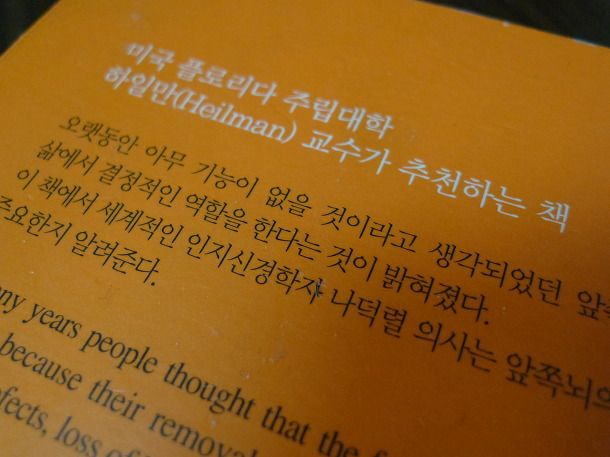 미국 플로리다 주립대학
하일만(Heilman) 교수가 추천하는 책
오랫동안 아무 기능이 없을 것이라고 생각되었던
삶에서 결정적인 역할을 한다는 것이 밝혀졌다.
이 책에서 세계적인 인지신경학자 나덕렬 의사는 앞쪽뇌의
알려준다.
years people thought that the
because their
loss of